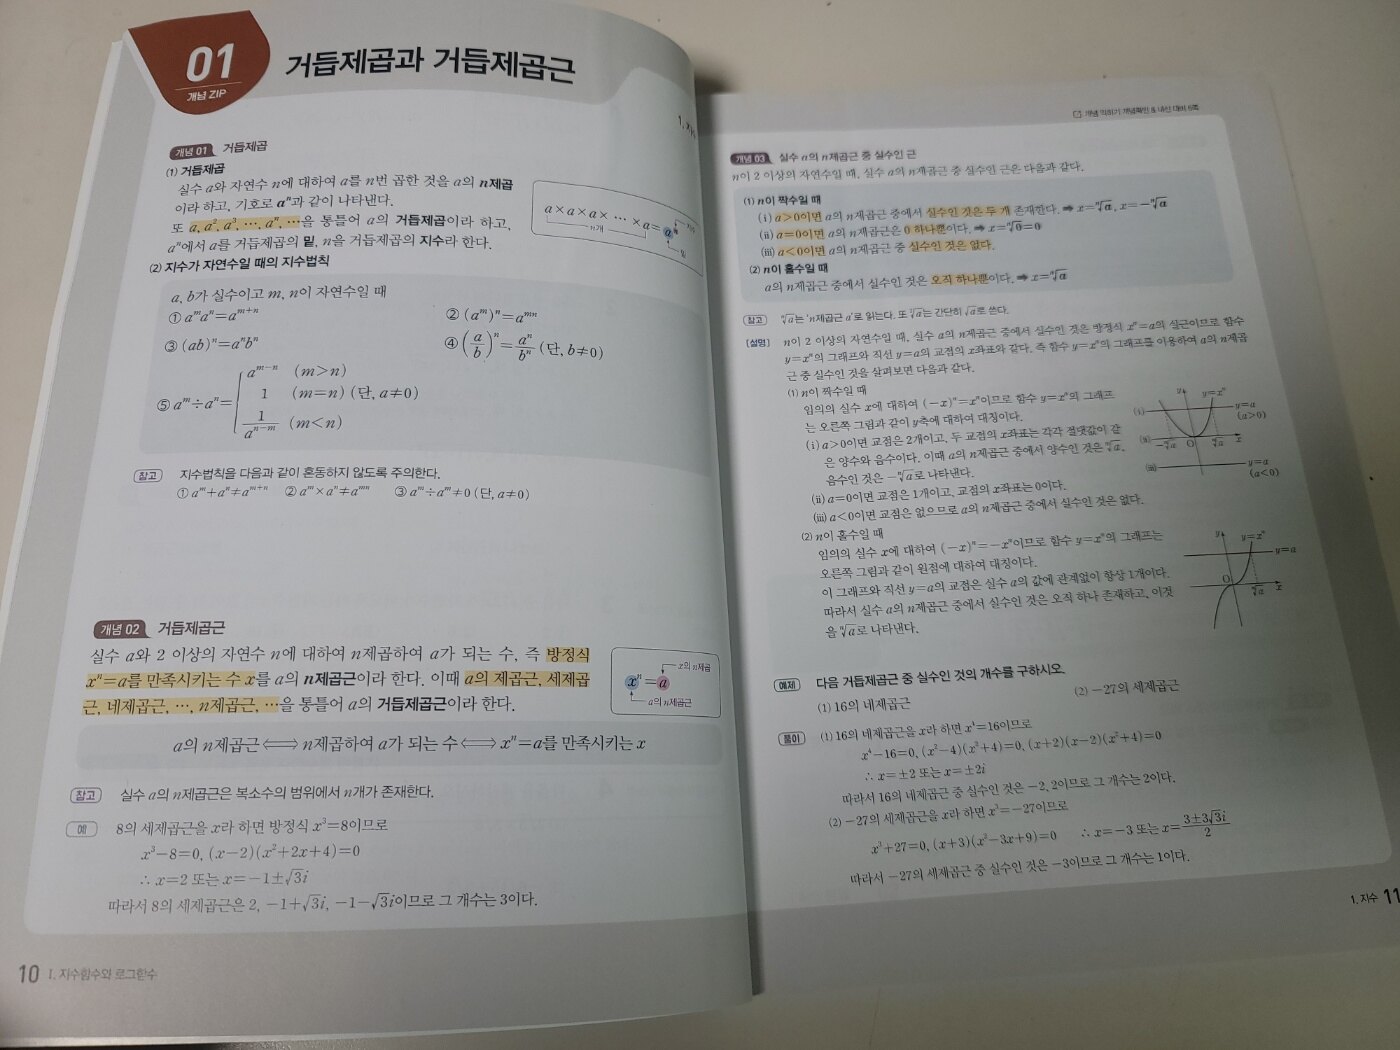 01
개념 ZIP
거듭제곱과 거듭제곱근
개념 01 거듭제곱
(1) 거듭제곱
실수 a와 자연수 n에 대하여 a를 n번 곱한 것을 a의 n제곱
이라 하고, 기호로 aⁿ과 같이 나타낸다.
또 a, a², a³, ⋯, aⁿ, ⋯을 통틀어 a의 거듭제곱이라 하고,
aⁿ에서 a를 거듭제곱의 밑, n을 거듭제곱의 지수라 한다.
a×a×a×⋯×a=aⁿ
n개
밑
(2) 지수가 자연수일 때의 지수법칙
a, b가 실수이고 m, n이 자연수일 때
① aᵐaⁿ=aᵐ⁺ⁿ ② (aᵐ)ⁿ=aᵐⁿ
③ (ab)ⁿ=aⁿbⁿ ④ (a/b)ⁿ=aⁿ/bⁿ (단, b≠0)
⑤ aᵐ÷aⁿ=
aᵐ⁻ⁿ (m>n)
1 (m=n) (단, a≠0)
1/aⁿ⁻ᵐ (m<n)
참고 지수법칙을 다음과 같이 혼동하지 않도록 주의한다.
① aᵐ+aⁿ≠aᵐ⁺ⁿ ② aᵐ×aⁿ≠aᵐⁿ ③ aᵐ÷aᵐ≠0 (단, a≠0)
개념 02 거듭제곱근
실수 a와 2 이상의 자연수 n에 대하여 n제곱하여 a가 되는 수, 즉 방정식
xⁿ=a를 만족시키는 수 x를 a의 n제곱근이라 한다. 이때 a의 제곱근, 세제곱
근, 네제곱근, ⋯, n제곱근, ⋯을 통틀어 a의 거듭제곱근이라 한다.
x의 n제곱
xⁿ=a
a의 n제곱근
a의 n제곱근⟺n제곱하여 a가 되는 수⟺xⁿ=a를 만족시키는 x
참고 실수 a의 n제곱근은 복소수의 범위에서 n개가 존재한다.
예 8의 세제곱근을 x라 하면 방정식 x³=8이므로
x³-8=0, (x-2)(x²+2x+4)=0
∴ x=2 또는 x=-1±√3i
따라서 8의 세제곱근은 2, -1+√3i, -1-√3i이므로 그 개수는 3이다.
10 I. 지수함수와 로그함수
개념 익히기 개념확인 & 내신 대비 6쪽
개념 03 실수 a의 n제곱근 중 실수인 근
n이 2 이상의 자연수일 때, 실수 a의 n제곱근 중 실수인 근은 다음과 같다.
(1) n이 짝수일 때
(i) a>0이면 a의 n제곱근 중에서 실수인 것은 두 개 존재한다. ➡ x=ⁿ√a, x=-ⁿ√a
(ii) a=0이면 a의 n제곱근은 0 하나뿐이다. ➡ x=ⁿ√0=0
(iii) a<0이면 a의 n제곱근 중 실수인 것은 없다.
(2) n이 홀수일 때
a의 n제곱근 중에서 실수인 것은 오직 하나뿐이다. ➡ x=ⁿ√a
참고 ⁿ√a는 'n제곱근 a'로 읽는다. 또 ²√a는 간단히 √a로 쓴다.
[설명] n이 2 이상의 자연수일 때, 실수 a의 n제곱근 중에서 실수인 것은 방정식 xⁿ=a의 실근이므로 함수
y=xⁿ의 그래프와 직선 y=a의 교점의 x좌표와 같다. 즉 함수 y=xⁿ의 그래프를 이용하여 a의 n제곱
근 중 실수인 것을 살펴보면 다음과 같다.
(1) n이 짝수일 때
임의의 실수 x에 대하여 (-x)ⁿ=xⁿ이므로 함수 y=xⁿ의 그래프
는 오른쪽 그림과 같이 y축에 대하여 대칭이다.
(i) a>0이면 교점은 2개이고, 두 교점의 x좌표는 각각 절댓값이 같
은 양수와 음수이다. 이때 a의 n제곱근 중에서 양수인 것은 ⁿ√a,
음수인 것은 -ⁿ√a로 나타낸다.
(ii) a=0이면 교점은 1개이고, 교점의 x좌표는 0이다.
(iii) a<0이면 교점은 없으므로 a의 n제곱근 중에서 실수인 것은 없다.
y y=xⁿ
(i) y=a
(a>0)
(ii) -ⁿ√a O ⁿ√a x
(iii) y=a
(a<0)
(2) n이 홀수일 때
임의의 실수 x에 대하여 (-x)ⁿ=-xⁿ이므로 함수 y=xⁿ의 그래프는
오른쪽 그림과 같이 원점에 대하여 대칭이다.
이 그래프와 직선 y=a의 교점은 실수 a의 값에 관계없이 항상 1개이다.
따라서 실수 a의 n제곱근 중에서 실수인 것은 오직 하나 존재하고, 이것
을 ⁿ√a로 나타낸다.
y y=xⁿ
y=a
O ⁿ√a x
예제 다음 거듭제곱근 중 실수인 것의 개수를 구하시오.
(1) 16의 네제곱근 (2) -27의 세제곱근
풀이 (1) 16의 네제곱근을 x라 하면 x⁴=16이므로
x⁴-16=0, (x²-4)(x²+4)=0, (x+2)(x-2)(x²+4)=0
∴ x=±2 또는 x=±2i
따라서 16의 네제곱근 중 실수인 것은 -2, 2이므로 그 개수는 2이다.
(2) -27의 세제곱근을 x라 하면 x³=-27이므로
x³+27=0, (x+3)(x²-3x+9)=0 ∴ x=-3 또는 x=(3±3√3i)/2
따라서 -27의 세제곱근 중 실수인 것은 -3이므로 그 개수는 1이다.
1. 지수 11